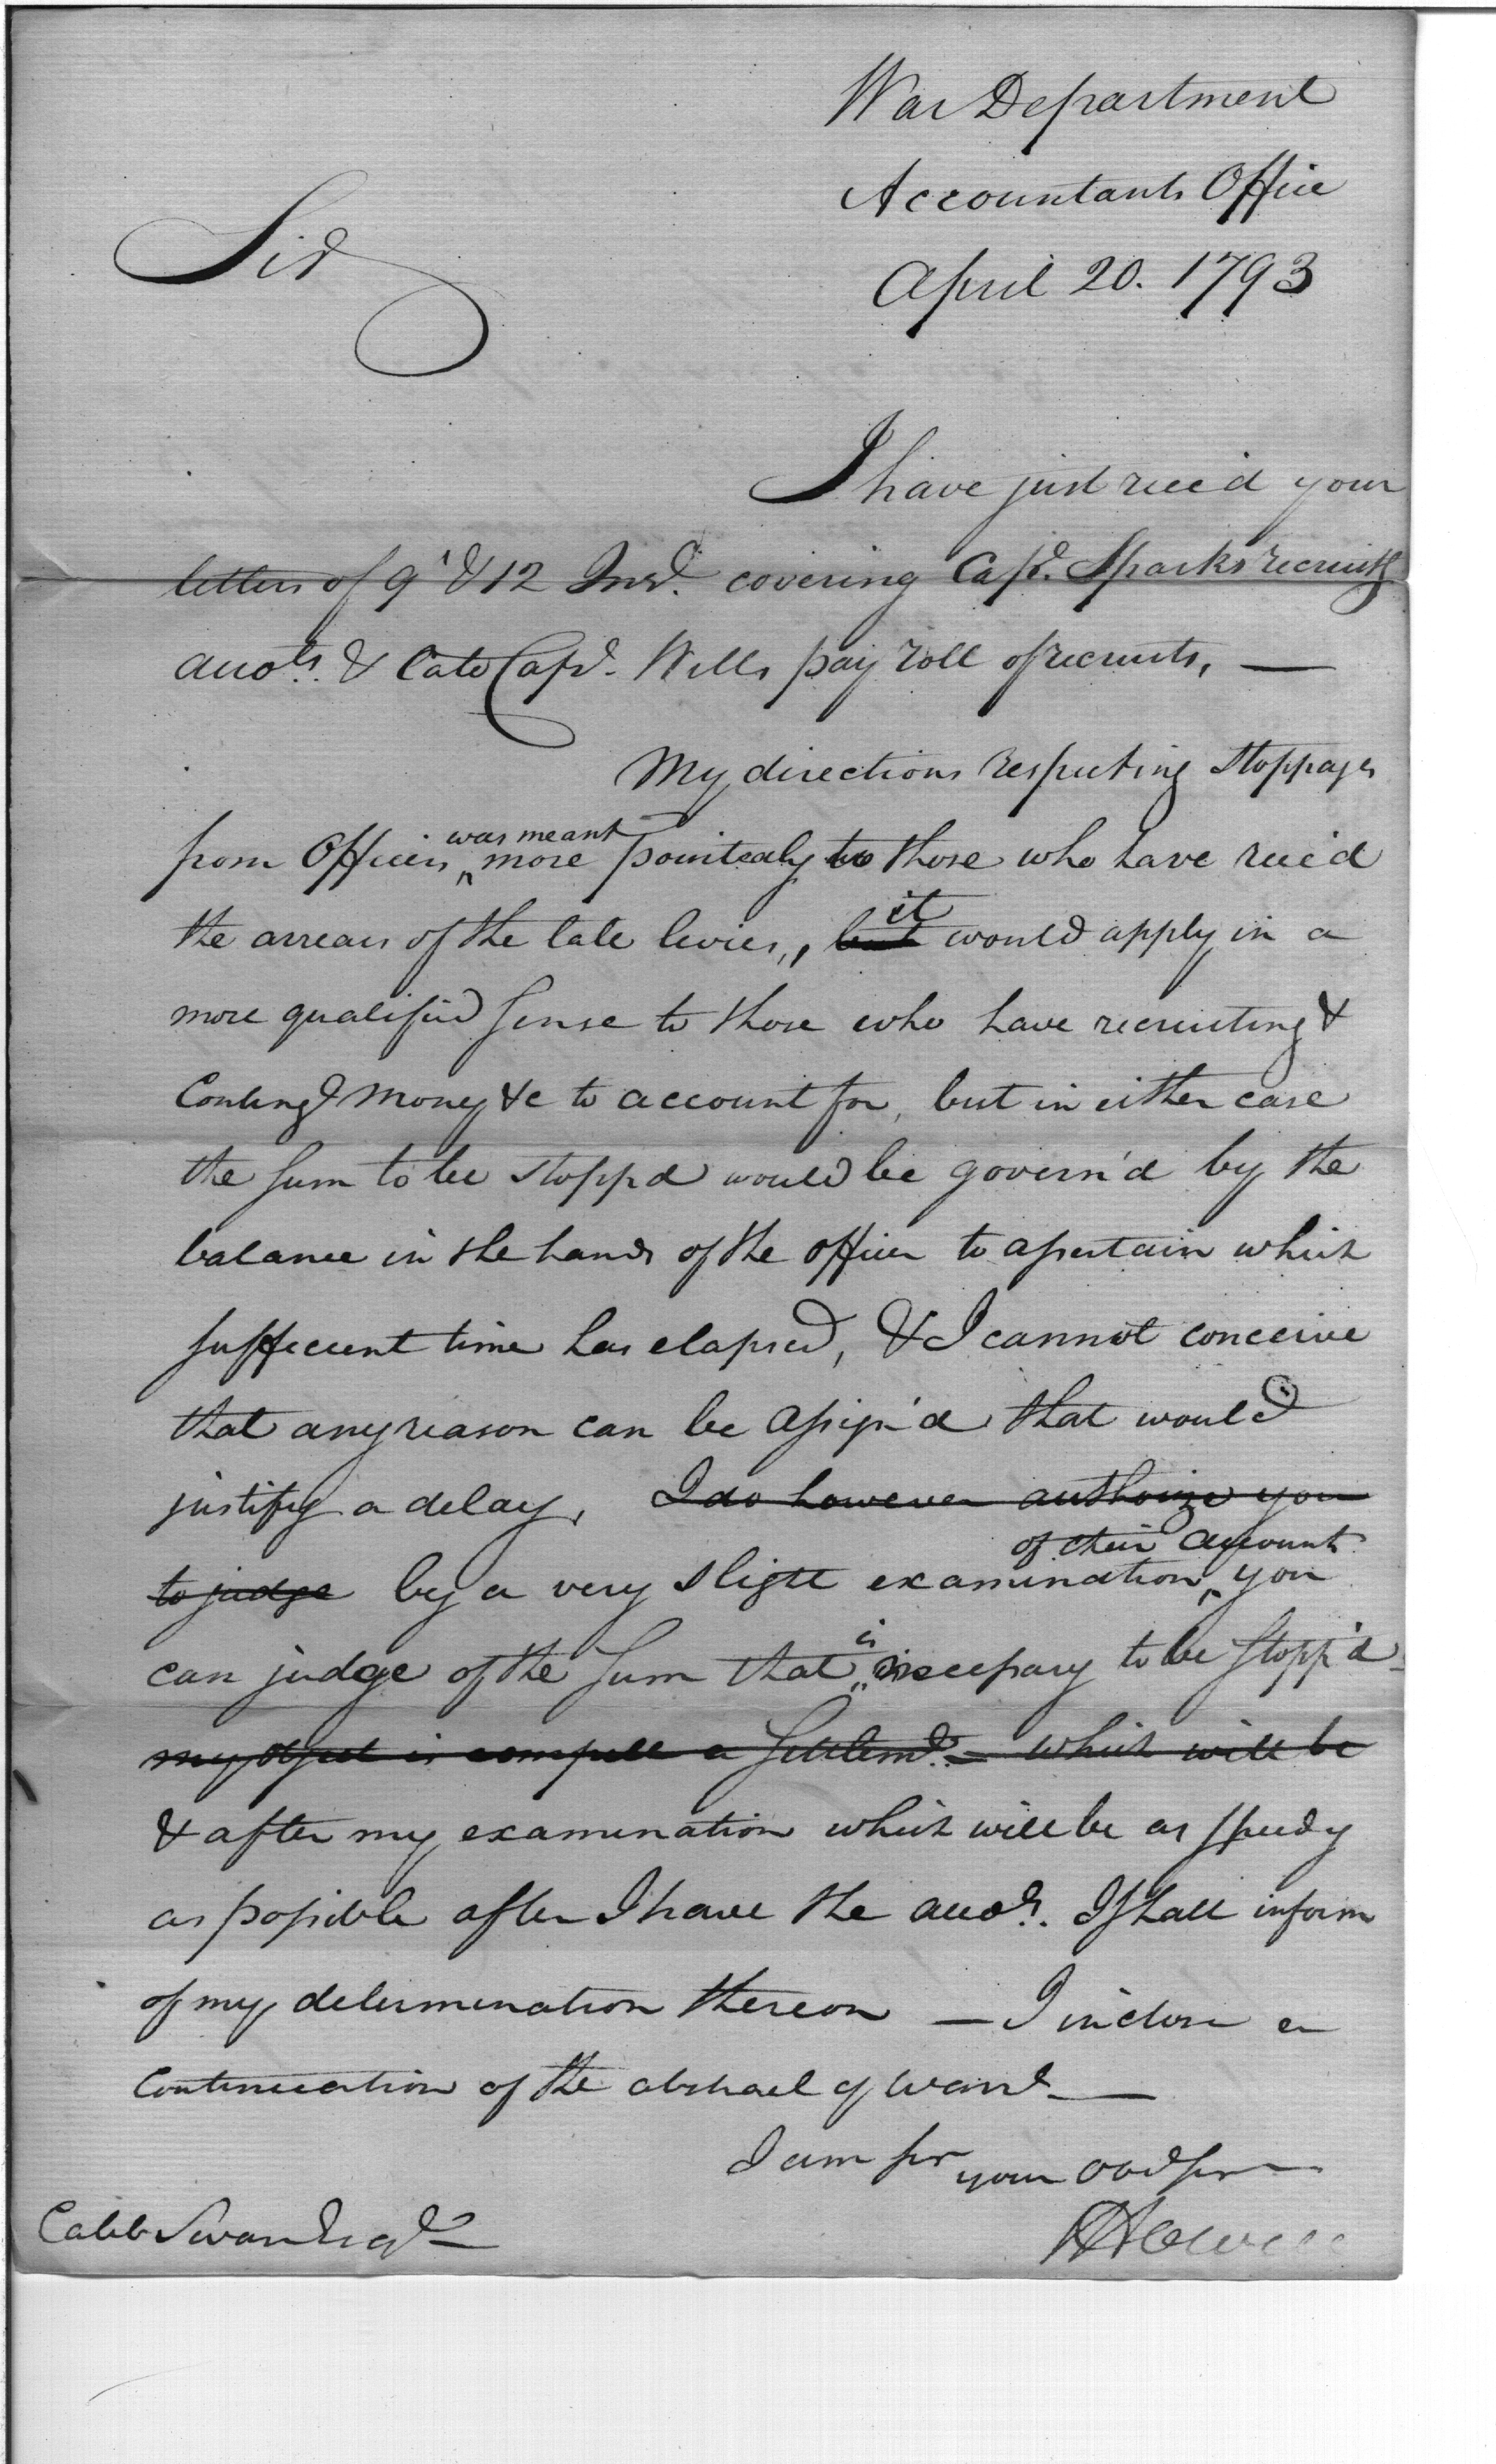 War Department
Accountants Office
April 20. 1793
Sir
I have just rece'd your
letters of 9 & 12 Inst. covering Capt. Sparks recruitg
accots. & Cato Capt. Wells pay roll of recruits, —
My directions respecting stoppages
from Officers was meant more pointedly to those who have rece'd
the arrears of the late levies, but it would apply in a
more qualified sense to those who have recruiting &
Contingt money &c to account for, but in either case
the sum to be stoppd would be govern'd by the
balance in the hands of the officer to assertain which
suffecient time has elapsed, & I cannot conceive
that any reason can be assign'd that would
justify a delay, I do however authorize you
to judge by a very slight examination of their accounts you
can judge of the sum that is necessary to be stopp'd
my object is compell a settlemt. – which will be
& after my examination which will be as speedy
as possible after I have the accots. I shall inform
of my determination thereon — I inclose a
Continuation of the abstract of warrts —
I am sir
your obd ser
Caleb Swan Esqr
J Howell